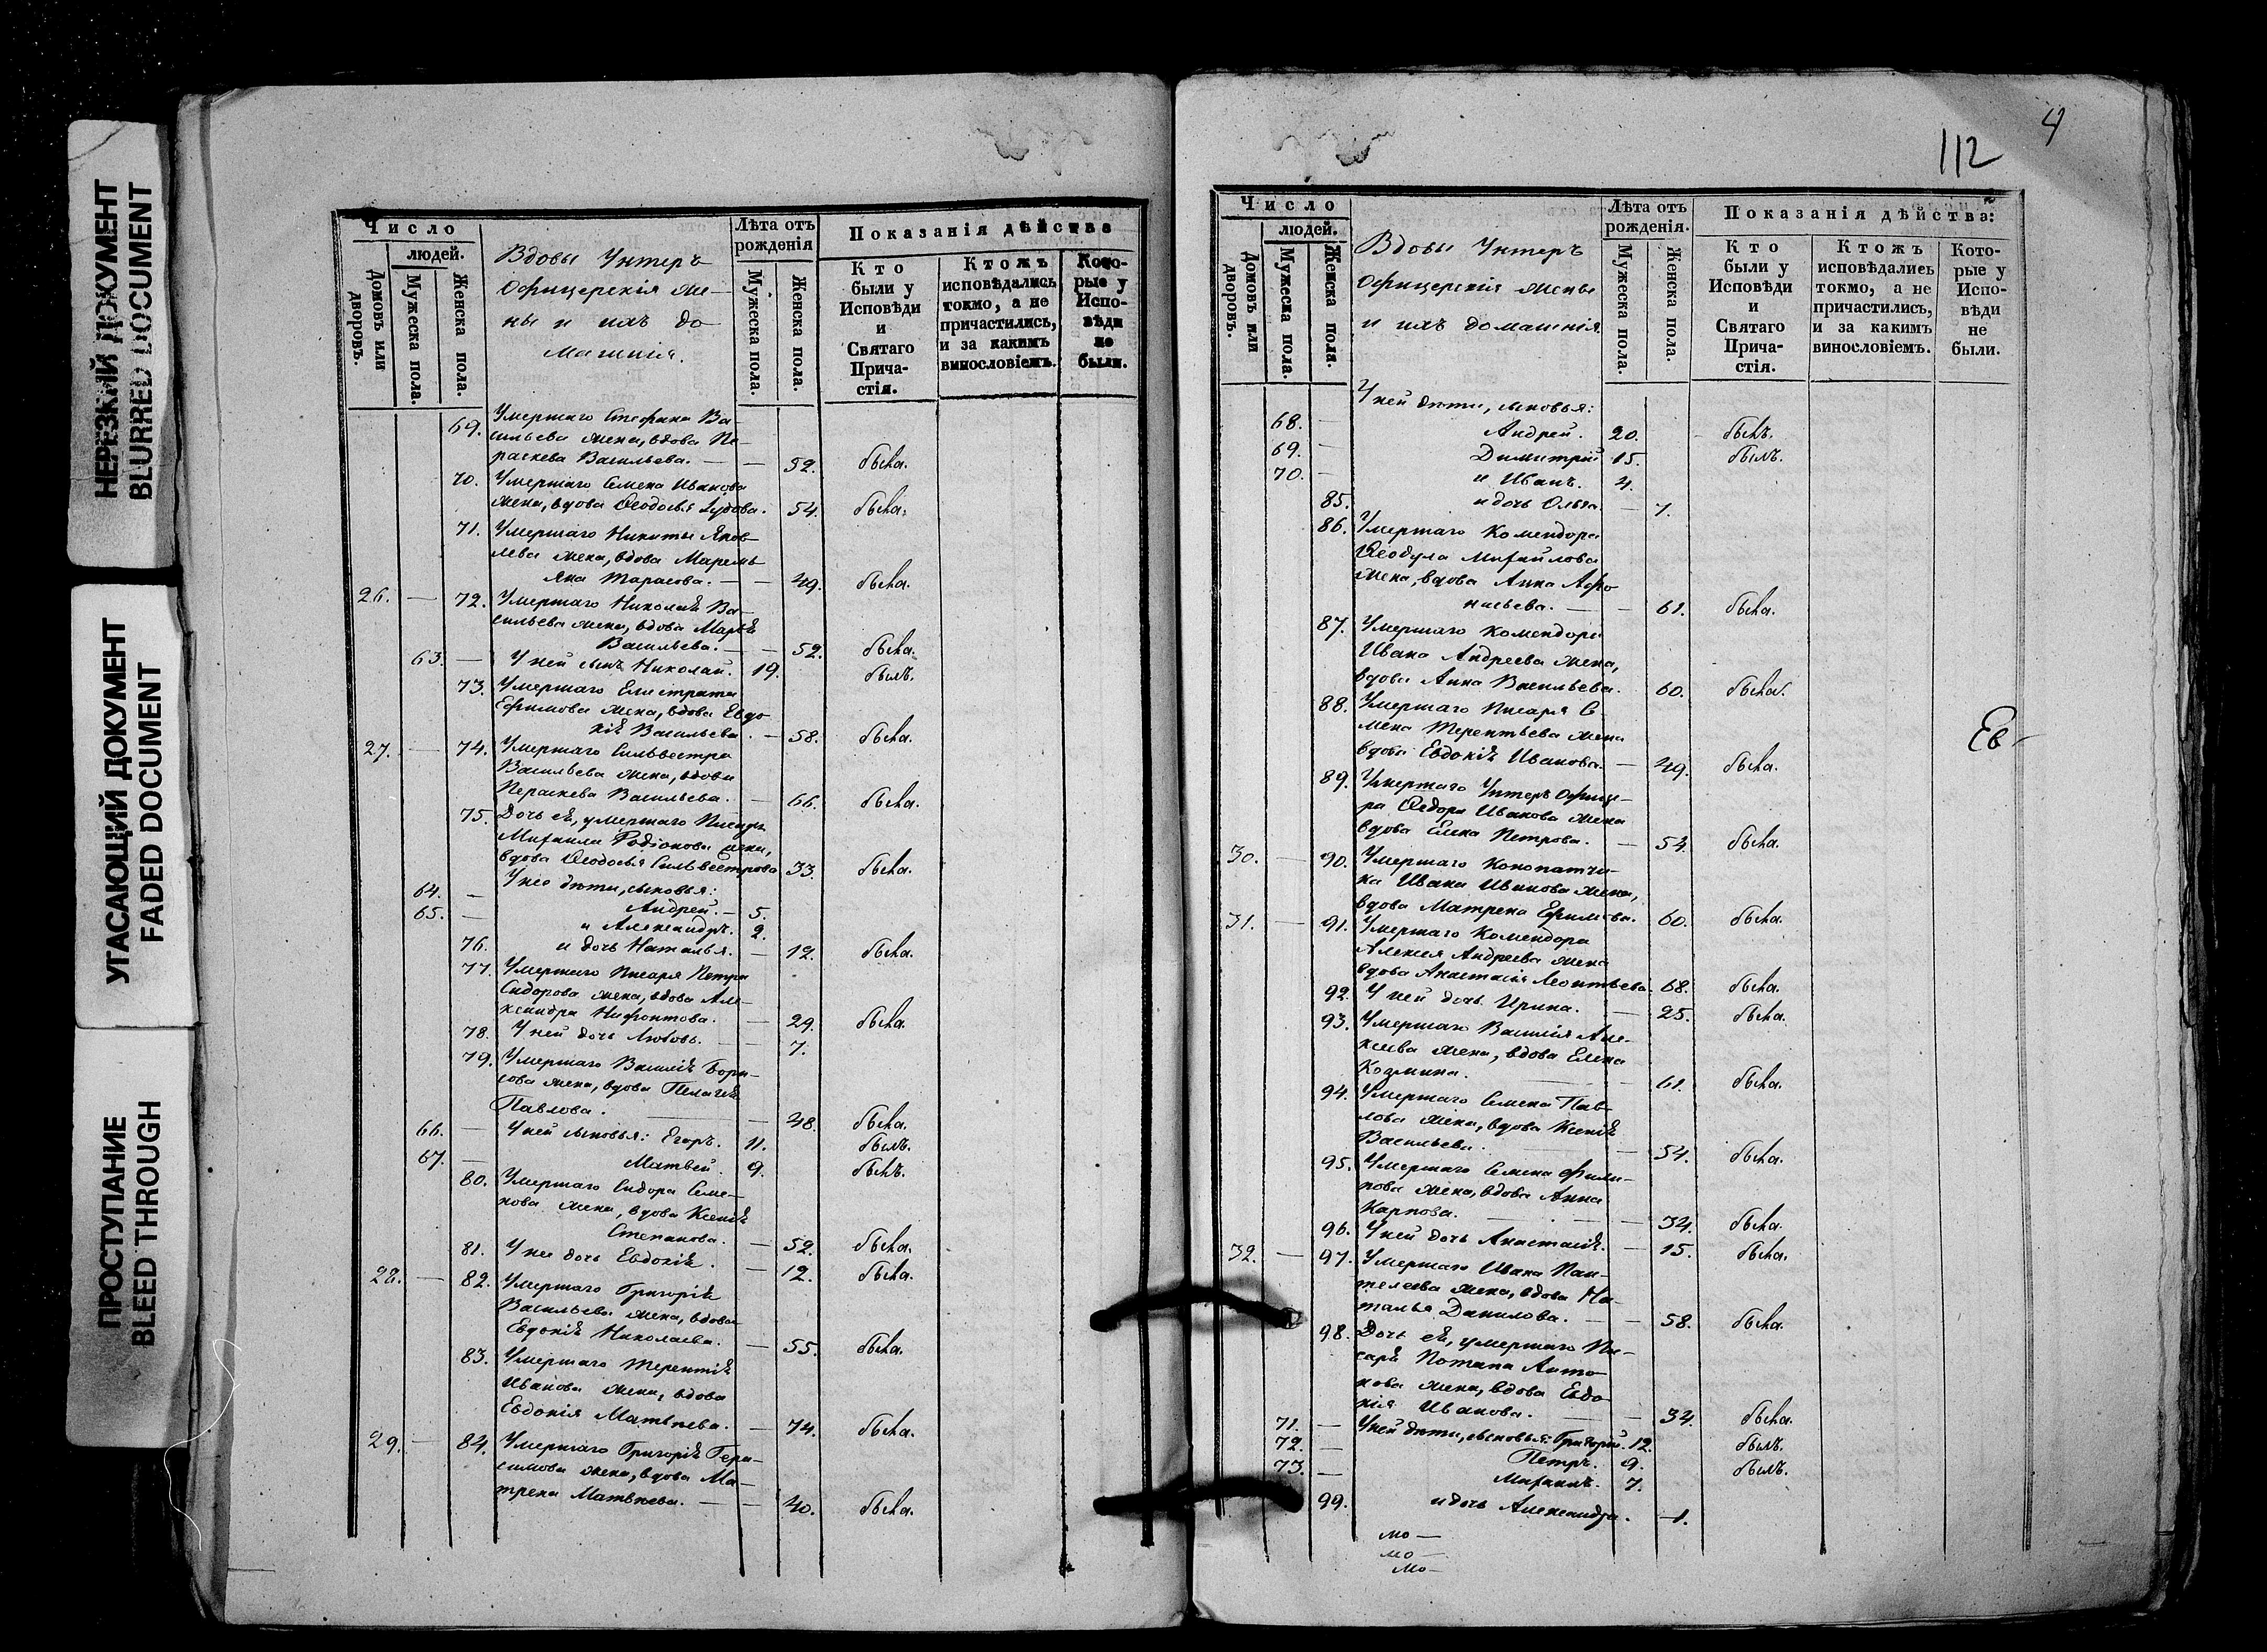 НЕРЕЗКИЙ ДОКУМЕНТ
BLURRED DOCUMENT
УГАСАЮЩИЙ ДОКУМЕНТ
FADED DOCUMENT
ПРОСТУПАНИЕ
BLEED THROUGH
Число
людей.
Домовъ или дворовъ.
Мужеска пола.
Женска пола.
Вдовы Унтеръ
Офицерскія же-
ны и ихъ до
машнія.
Лѣта отъ рожденія
Мужеска пола.
Женска пола.
Показанія дѣйства
Кто были у Исповѣди и Святаго Прича-стія.
Ктожъ исповѣдались токмо, а не причастились, и за какимъ винословіемъ.
Кото-рые у Испо-вѣди не были.
69. Умершаго Стефана Ва-
сильева жена, вдова Па-
раскева Васильева. — — 52. была.
70. Умершаго Семена Иванова
жена, вдова Ѳеодосья Іудова. 54. была.
71. Умершаго Никиты Яков-
лева жена, вдова Маремь
яна Тарасова. — — 49. была.
26. — 72. Умершаго Николая Ва-
сильева жена, вдова Марья
Васильева. — — 52. была.
63. — У ней сынъ Николай. 19. былъ.
73. Умершаго Елистрата
Ефимова жена, вдова Евдо
кія Васильева. — 58. была.
27. — 74. Умершаго Сильвестра
Васильева жена, вдова
Параскева Васильева. — 66. была.
75. Дочь ея, умершаго Писаря
Михаила Родіонова жена,
вдова Ѳеодосья Сильвестрова 33. была.
У нее дѣти, сыновья:
64. — Андрей. — 5.
65. — и Александръ. 2.
76. и дочь Наталья. — 12. была.
77. Умершаго Писаря Петра
Сидорова жена, вдова Але-
ксандра Нифонтова. — 29. была.
78. У ней дочь Любовь. — — 7.
79. Умершаго Василія Бори-
сова жена, вдова Пелагея
Павлова. — — 48. была.
66. — У ней сыновья: Егоръ. 11. былъ.
67. — Матвей. 9. былъ.
80. Умершаго Сидора Семе-
нова жена, вдова Ксенія
Степанова. — 52. была.
81. У нее дочь Евдокія. — 12. была.
28. — 82. Умершаго Григорія
Васильева жена, вдова
Евдокія Николаева. — 55. была.
83. Умершаго Терентія
Иванова жена, вдова
Евдокія Матвѣева. — 74. была.
29. — 84. Умершаго Григорія Гера-
симова жена, вдова Ма-
трена Матвѣева. — — 40. была.
4
112
Число
людей.
Домовъ или дворовъ.
Мужеска пола.
Женска пола.
Вдовы Унтеръ
Офицерскія жены
и ихъ домашнія.
Лѣта отъ рожденія.
Мужеска пола.
Женска пола.
Показанія дѣйства:
Кто были у Исповѣди и Святаго Прича-стія.
Ктожъ исповѣдались токмо, а не причастились, и за какимъ винословіемъ.
Кото-рые у Испо-вѣди не были.
У ней дѣти, сыновья:
68. — Андрей. 20. былъ.
69. — Димитрій 15. былъ.
70. — и Иванъ. 4.
85. и дочь Ольга. — 7.
86. Умершаго Комендора
Ѳеодула Михайлова
жена, вдова Анна Афо
насьева. — — 61. была.
87. Умершаго Комендора
Ивана Андреева жена,
вдова Анна Васильева. 60. была.
88. Умершаго Писаря Се
мена Терентьева жена
вдова Евдокія Иванова. — 49. была.
89. Умершаго Унтеръ Офице-
ра Ѳедора Иванова жена
вдова Елена Петрова. — 54. была.
30. — 90. Умершаго Конопатчи-
ка Ивана Иванова жена,
вдова Матрена Ефимова. 60. была.
31. — 91. Умершаго Комендора
Алексея Андреева жена
вдова Анастасія Леонтьева. 68. была.
92. У ней дочь Ирина. — 25. была.
93. Умершаго Василія Але-
ксеева жена, вдова Елена
Козмина. — — 61. была.
94. Умершаго Семена Пав-
лова жена, вдова Ксенія
Васильева. — — 54. была.
95. Умершаго Семена Фили-
пова жена, вдова Анна
Карпова. — — 34. была.
96. У ней дочь Анастасія. — 15. была.
32. — 97. Умершаго Ивана Пан-
телеева жена, вдова На-
талья Данилова. — — 58. была.
98. Дочь ея, умершаго Пи-
саря Потапа Анто
нова жена, вдова Евдо
кія Иванова. — — 34. была.
71. — У ней дѣти, сыновья: Григорій. 12. былъ.
72. — Петръ. 9. былъ.
73. — Михаилъ. 7.
99. и дочь Александра. — 1.
Ев-
мо—
мо—
мо—